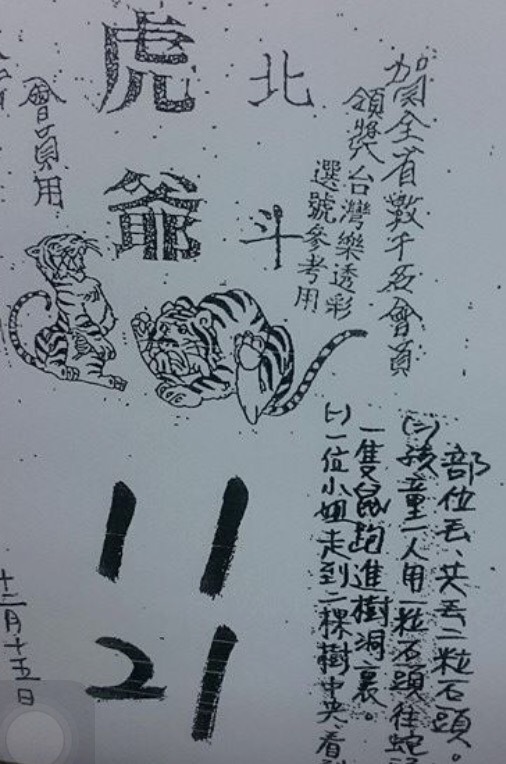 賀全省數千名會員
領獎台灣樂透彩
選號參考用
北斗
虎爺
會員用
(一)一位小姐走到二棵樹中央看
一隻鼠跑進樹洞裏。
(二)孩童一人用一粒石頭往蛇
部位丟、共丟二粒石頭。
11
21
十二月十五日